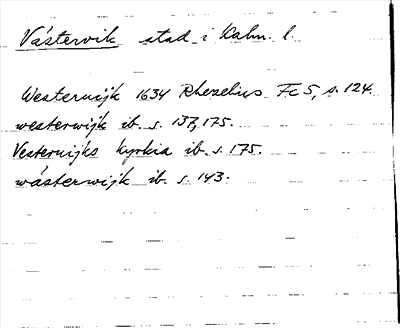 Västervik stad i Kalm. l.
Westerwijk 1634 Rhezelius Fc 5, s. 124.
westerwijk ib. s. 137, 175.
Vesterwijks kyrkia ib. s. 175.
wästerwijk ib. s. 143.